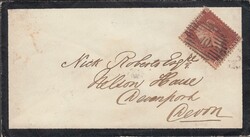 Nick Roberts Esqre
Helion House
Devonport
Devon